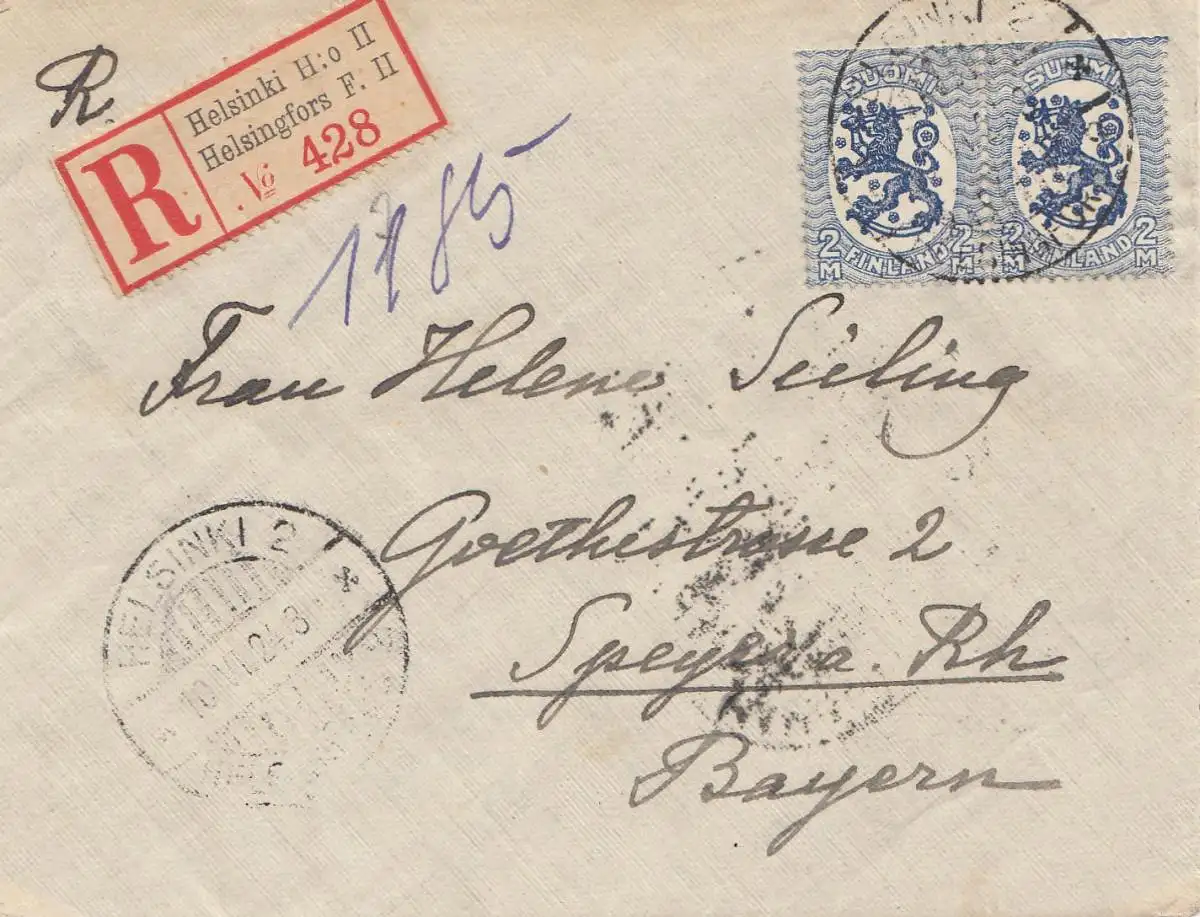 R.
Helsinki H:o II
Helsingfors F. II
R
№ 428
HELSINKI 2
SUOMI SUOMI
2 2 2 2
M FINLAND M M FINLAND M
Frau Helene Sieling
Goethestrasse 2
Speyer a. Rh
Bayern
HELSINKI 2